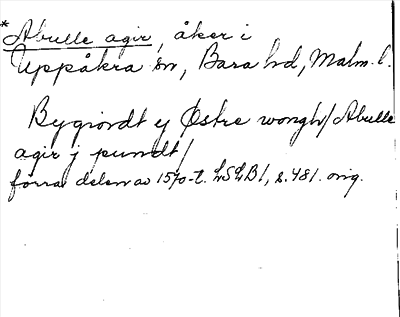 * Abulle agir, åker i
Uppåkra sn, Bara hd, Malm. l.
Bygiordt ej Østre wongh/Abulle
agir j pundt/
förra delen av 1570-t. LSLB1, s. 481. orig.